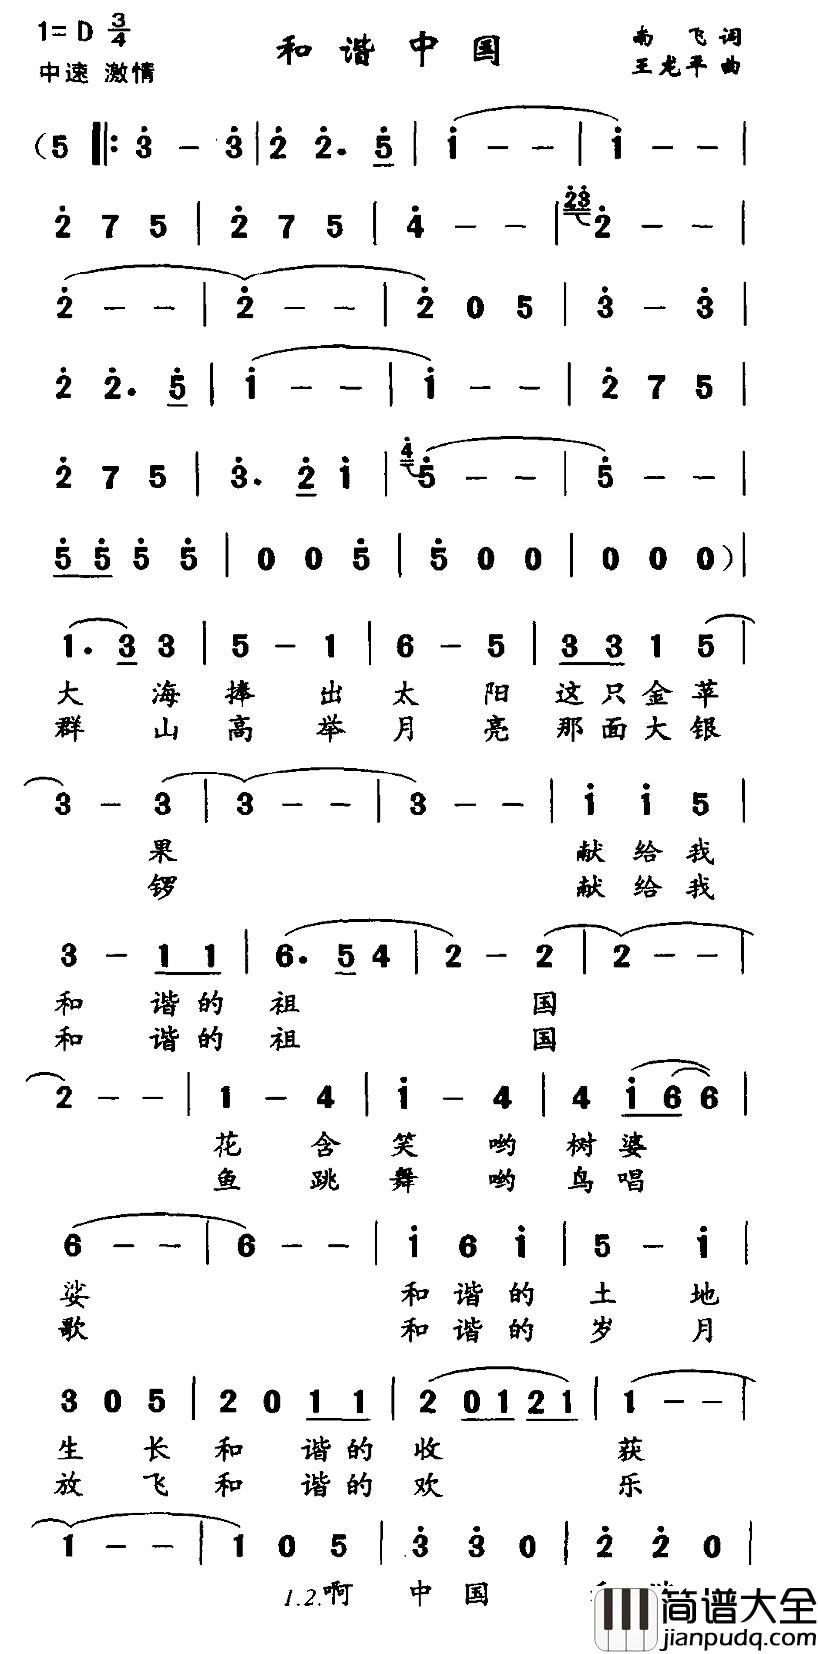 1=D 3/4
和谐中国
南飞词
中速 激情
王龙平曲
(5 ‖: 3 - 3 | 2 2. 5 | 1 - - | 1 - - |
2 7 5 | 2 7 5 | 4 - - | 23 2 - - |
2 - - | 2 - - | 2 0 5 | 3 - 3 |
2 2. 5 | 1 - - | 1 - - | 2 7 5 |
2 7 5 | 3. 2 1 | 4 5 - - | 5 - - |
5 5 5 5 | 0 0 5 | 5 0 0 | 0 0 0) |
1. 3 3 | 5 - 1 | 6 - 5 | 3 3 1 5 |
大海捧出太阳这只金苹
群山高举月亮那面大银
3 - 3 | 3 - - | 3 - - | 1 1 5 |
果 献给我
锣 献给我
3 - 1 1 | 6. 5 4 | 2 - 2 | 2 - - |
和谐的祖国
和谐的祖国
2 - - | 1 - 4 | 1 - 4 | 4 1 6 6 |
花含笑哟树婆
鱼跳舞哟鸟唱
6 - - | 6 - - | 1 6 1 | 5 - 1 |
娑 和谐的土地
歌 和谐的岁月
3 0 5 | 2 0 1 1 | 2 0 1 2 1 | 1 - - |
生长和谐的收获
放飞和谐的欢乐
1 - - | 1 0 5 | 3 3 0 | 2 2 0 |
1.2.啊 中国
简谱大全
jianpudq.com